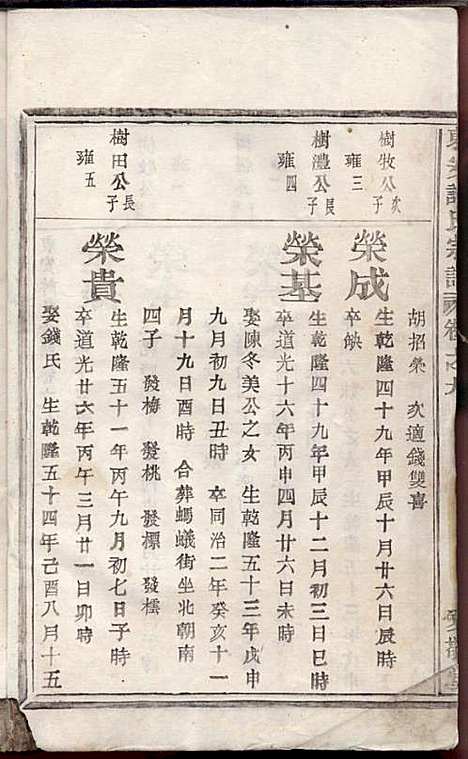 氏宗譜 卷之九
胡招榮 次適錢雙喜
樹牧公次子
雍三
榮成
生乾隆四十九年甲辰十月廿六日辰時
卒缺
樹灃公長子
雍四
榮基
生乾隆四十九年甲辰十二月初三日巳時
卒道光十六年丙申四月廿六日未時
娶陳冬美公之女 生乾隆五十三年戊申
九月初九日丑時 卒同治二年癸亥十一
月十九日酉時 合葬螞蟻街坐北朝南
四子 發梅 發桃 發標 發檽
樹田公長子
雍五
榮貴
生乾隆五十一年丙午九月初七日子時
卒道光廿六年丙午三月廿一日卯時
娶錢氏 生乾隆五十四年己酉八月十五